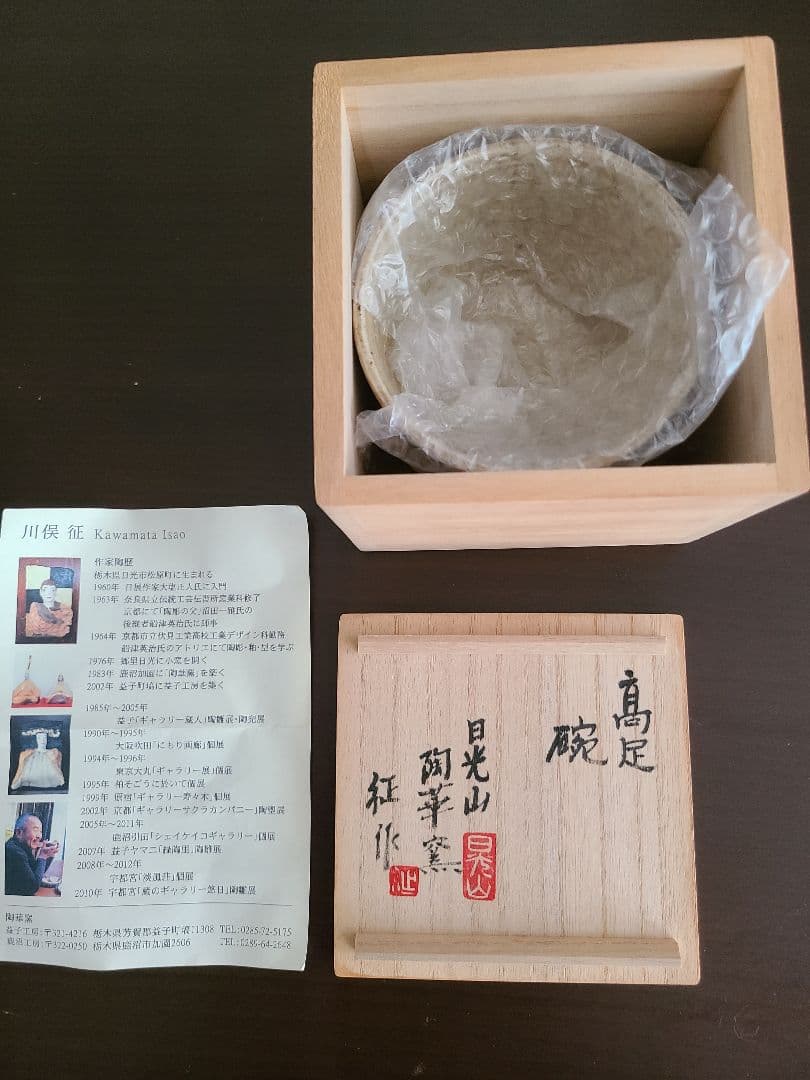 川俣 征 Kawamata Isao
作家陶歴
栃木県日光市松原町に生まれる
1960年 日展作家大塩正人氏に入門
1963年 奈良県立伝統工芸伝習所窯業科修了
京都にて「陶彫の父」沼田一雅氏の
後継者船津英治氏に師事
1964年 京都市立伏見工業高校工業デザイン科勤務
船津英治氏のアトリエにて陶彫・釉・型を学ぶ
1976年 郷里日光に小窯を開く
1983年 鹿沼加園に「陶華窯」を築く
2002年 益子町塙に益子工房を築く
1985年～2005年
益子「ギャラリー蔵人」陶雛展・陶兜展
1990年～1995年
大阪吹田「にもり画廊」個展
1994年～1996年
東京大丸「ギャラリー展」個展
1995年 柏そごうに於いて個展
1999年 原宿「ギャラリー寿々木」個展
2002年 京都「ギャラリーサクラカンパニー」陶雛展
2005年～2011年
鹿沼引田「シェイケイコギャラリー」個展
2007年 益子ヤマニ「緑陶里」陶雛展
2008年～2012年
宇都宮「淡風荘」個展
2010年 宇都宮「蔵のギャラリー悠日」陶雛展
陶華窯
益子工房:〒321-4216 栃木県芳賀郡益子町塙1308 TEL:0285-72-5175
鹿沼工房:〒322-0250 栃木県鹿沼市加園2606 TEL:0289-64-2648
高足
碗
日光山
陶華窯
征作
日光山